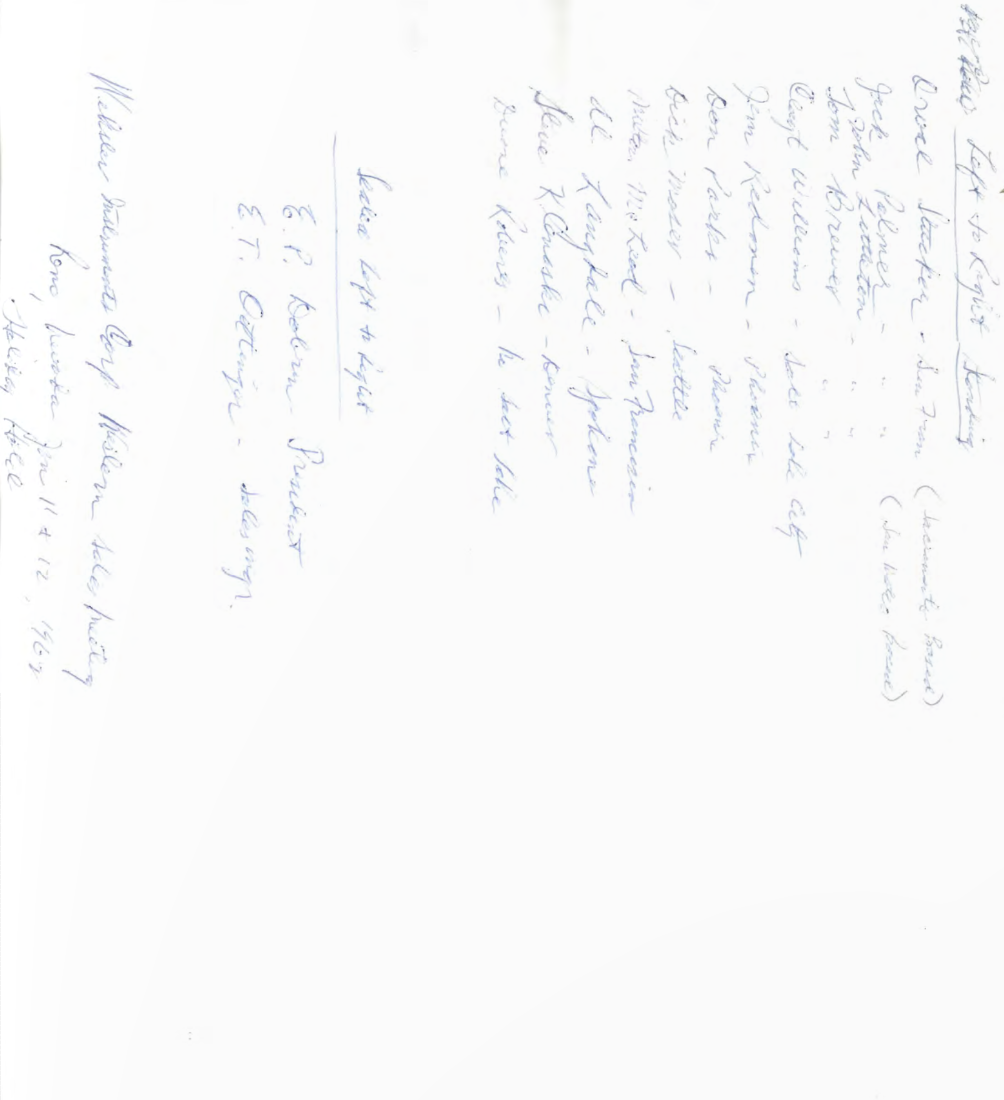 Left to Right Standing
Orvel Stacker - San Fran (Sacramento Based)
Jack Palmer - " " (San Mateo Based)
John Littleton - " "
Tom Brewer " "
Williams - Salt Lake City
Jim Redmon - Phoenix
Don Parks - Phoenix
Dick Moser - Seattle
Mike McLeod - San Francisco
Al Langdale - Spokane
Steve Klinoske - Denver
Duane - Salt Lake
Seated Left to Right
E. P. Dobin - President
E. T. Ottinger - Sales mgr.
Webster Instruments Corp Western Sales Meeting
Reno, Nevada Jan 11 & 12, 1962
Holiday Hotel